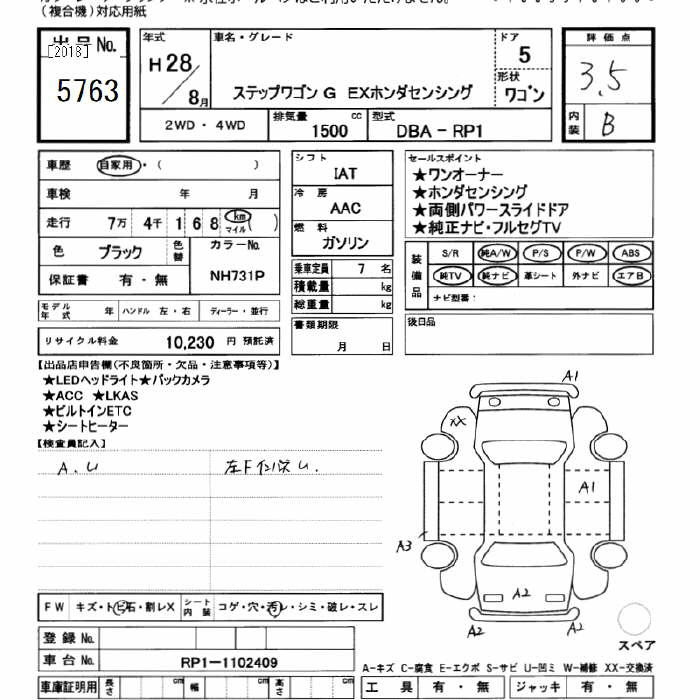 （複合機）対応用紙
出品No.
[2018]
5763
年式
H28/8月
車名・グレード
ステップワゴン G EXホンダセンシング
ドア
5
形状
ワゴン
評価点
3.5
内装
B
2WD・4WD
排気量
1500 cc
型式
DBA - RP1
車歴 自家用・（ ）
車検 年 月
走行 7万 4千 1 6 8 km マイル ( )
色 ブラック 色替 カラーNo. NH731P
保証書 有・無
モデル年式 年 ハンドル 左・右 ディーラー・並行
リサイクル料金 10,230 円 預託済
シフト
IAT
冷房
AAC
燃料
ガソリン
乗車定員 7 名
積載量 kg
総重量 kg
書類期限
月 日
セールスポイント
★ワンオーナー
★ホンダセンシング
★両側パワースライドドア
★純正ナビ・フルセグTV
装備品
S/R 純A/W P/S P/W ABS
純TV 純ナビ 革シート 外ナビ エアB
ナビ型番：
後日品
【出品店申告欄（不良箇所・欠品・注意事項等）】
★LEDヘッドライト★バックカメラ
★ACC ★LKAS
★ビルトインETC
★シートヒーター
【検査員記入】
A.U
左F
U.
FW キズ・トビ石・割レX シート内装 コゲ・穴・汚レ・シミ・破レ・スレ
登録No.
車台No. RP1-1102409
車庫証明用 長さ cm 幅 cm 高さ cm
A1
XX
A1
A3
A2
A2
A2
スペア
A-キズ C-腐食 E-エクボ S-サビ U-凹ミ W-補修 XX-交換済
工具 有・無 ジャッキ 有・無